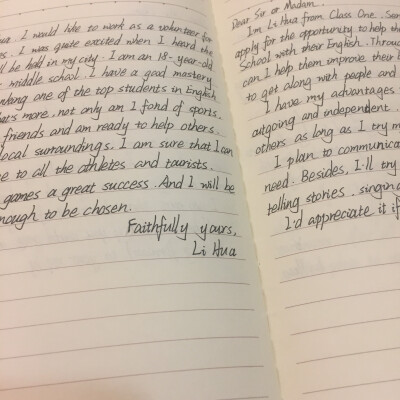 I would like to work as a volunteer for
I was quite excited when I heard the
be held in my city. I am an 18-year-old
middle school. I have a good mastery
one of the top students in English
more, not only am I fond of sports.
friends and am ready to help others.
local surroundings. I am sure that I can
to all the athletes and tourists.
games a great success. And I will be
to be chosen.
Faithfully yours,
Li Hua
Dear Sir or Madam,
I'm Li Hua from Class One.
apply for the opportunity to help the
School with their English.
can I help them improve their
to get along with people and
I have my advantages
outgoing and independent.
others as long as I try
I plan to
need. Besides, I'll try
telling stories.
I'd appreciate it if